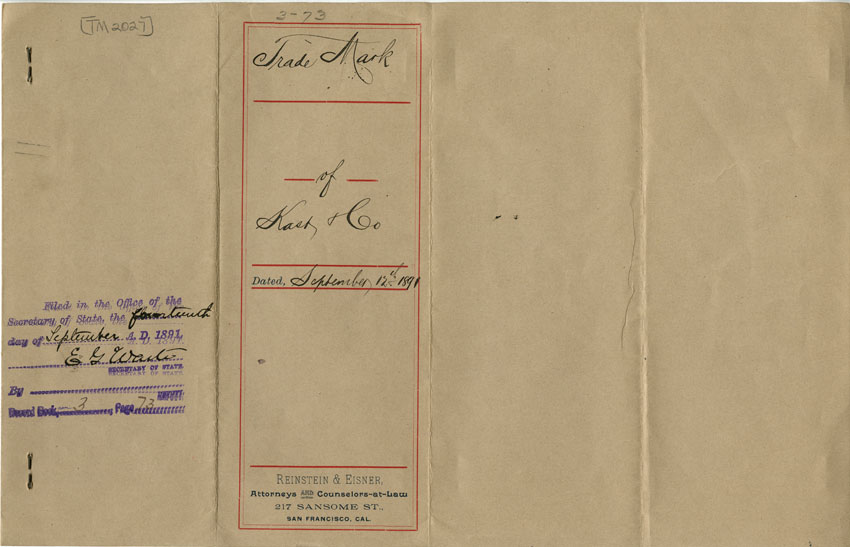 [TM2027]
3-73
Trade Mark
of
Kast & Co
Dated, September, 12th 1891
REINSTEIN & EISNER,
Attorneys AND Counselors-at-Law
217 SANSOME ST.,
SAN FRANCISCO, CAL.
Filed in the Office of the
Secretary of State, the fourteenth
day of September A. D. 1891.
E G Waite
SECRETARY OF STATE
By
Record Book 3 Page 73